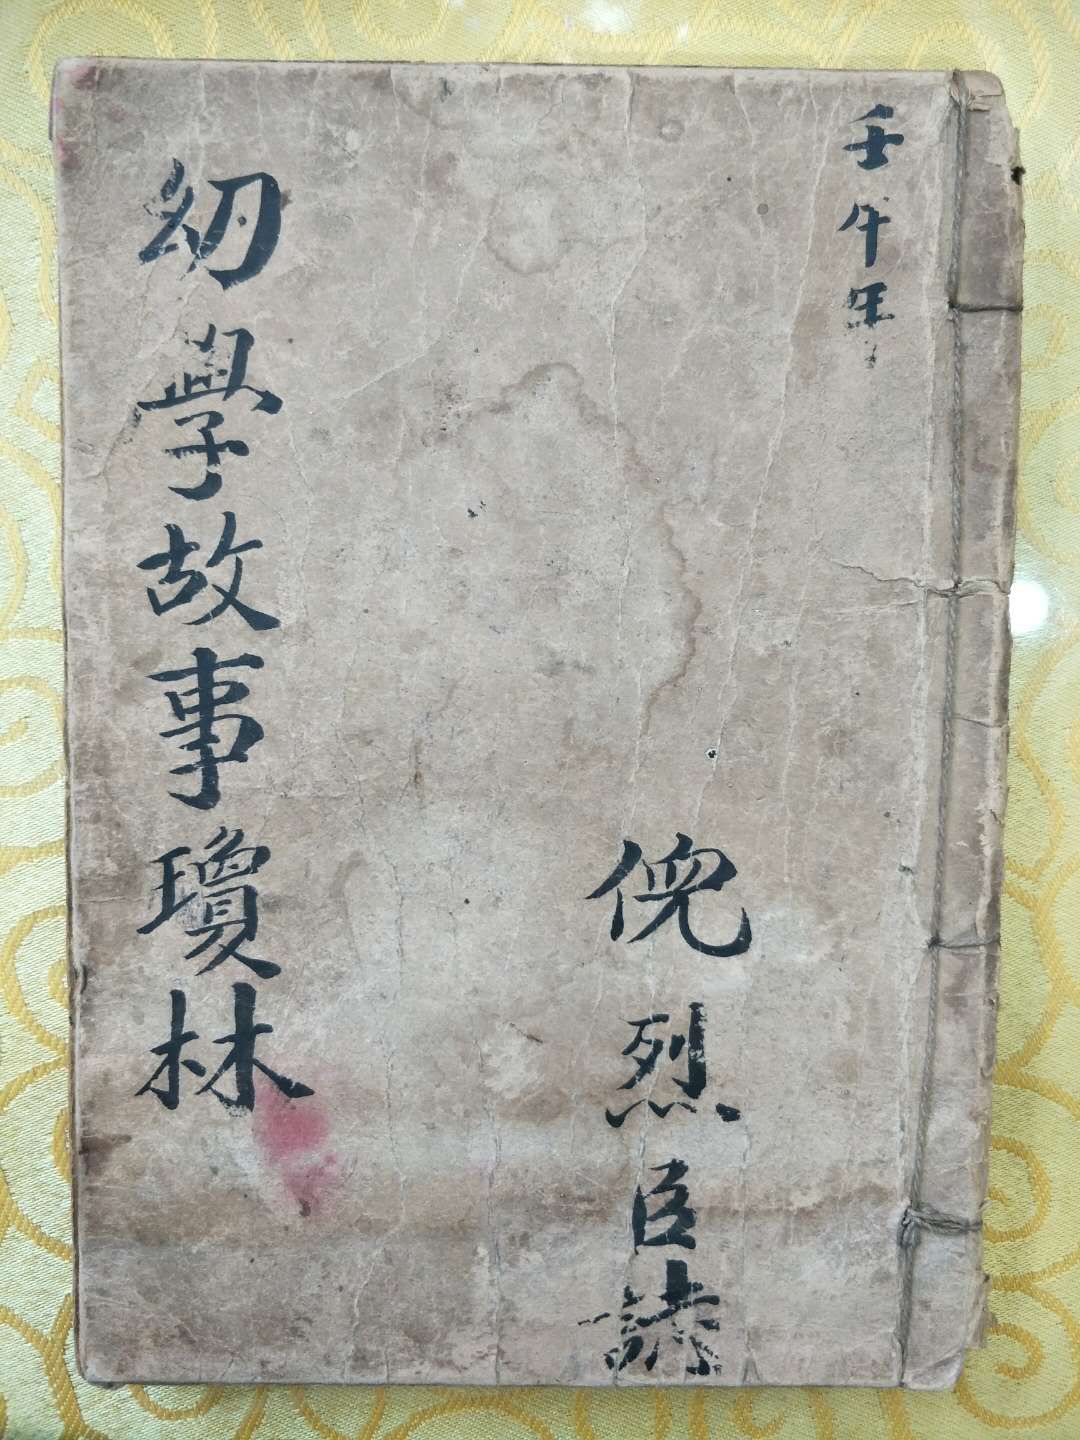 壬午年
倪烈臣讀
幼學故事瓊林